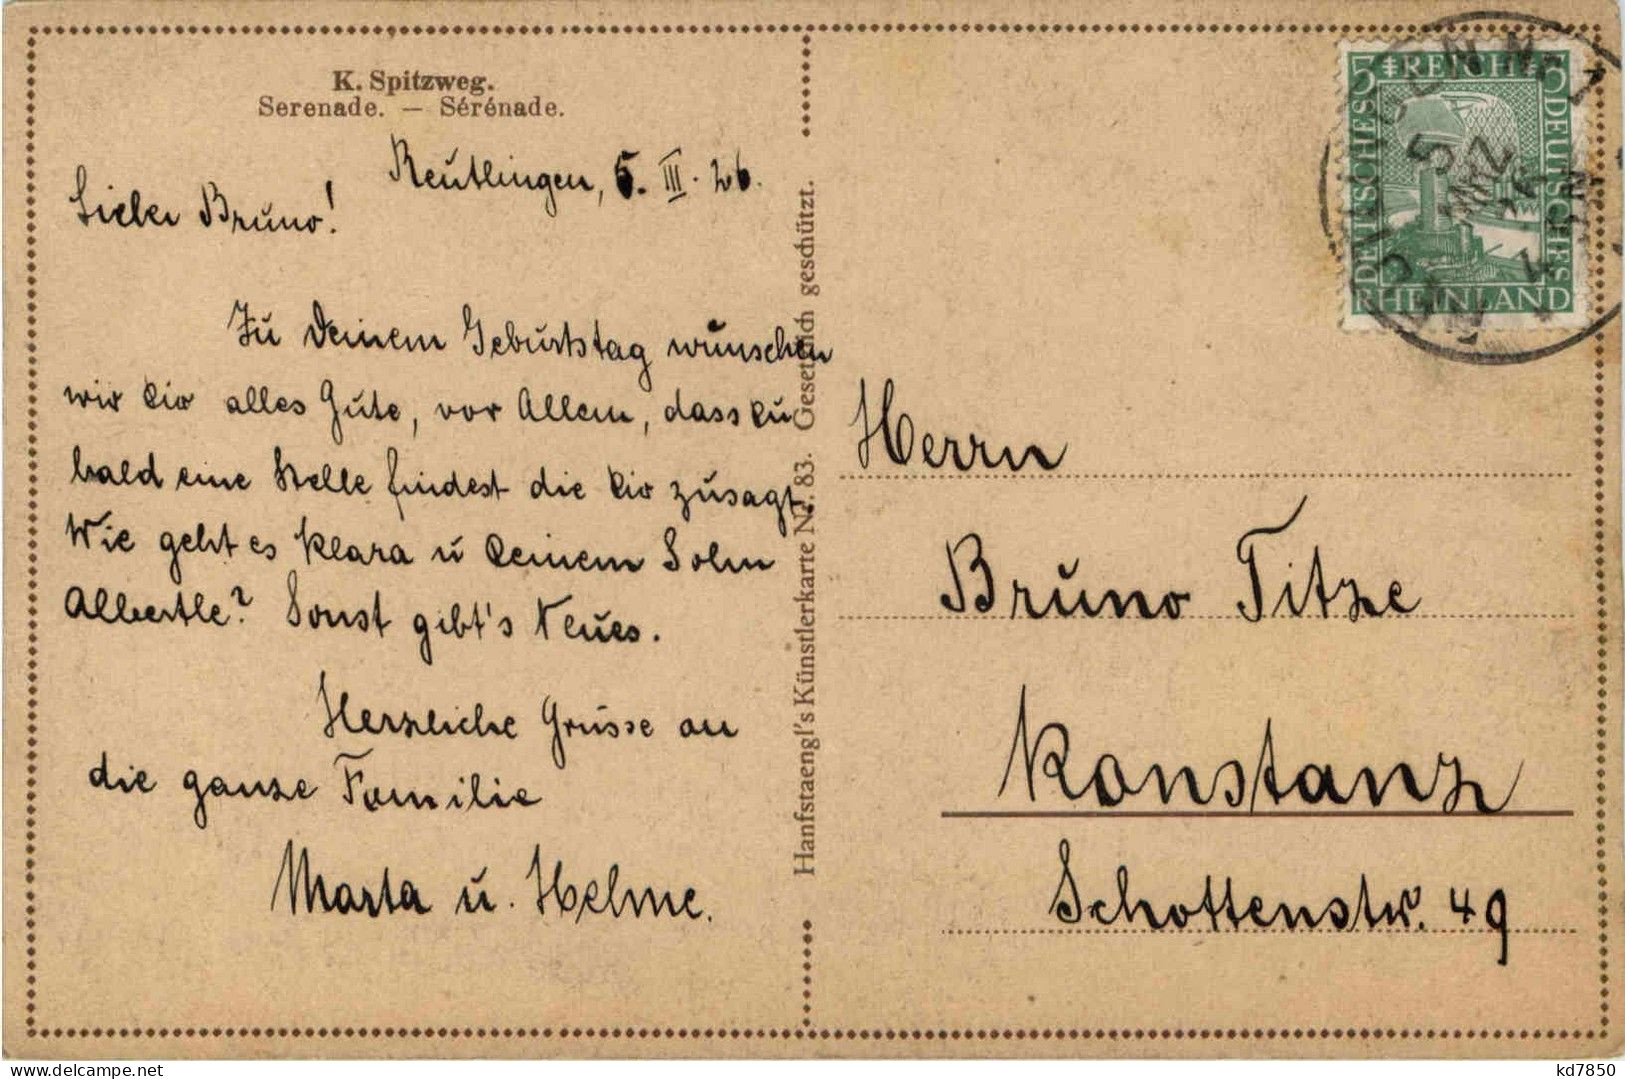 K. Spitzweg.
Serenade. — Sérénade.
Reutlingen, 5. III. 26.
Lieber Bruno!
Zu Deinem Geburtstag wünschen
wir dir alles Gute, vor Allem, dass du
bald eine Stelle findest die dir zusagt.
Wie geht es Klara u deinem Sohn
Albertle? Sonst gibt's Neues.
Herzliche Grüsse an
die ganze Familie
Marta u. Helme.
Hanfstaengl's Künstlerkarte Nr. 83. Gesetzlich geschützt.
5 REICH 5
DEUTSCHES
DEUTSCHES
RHEINLAND
5
MRZ
Herrn
Bruno Titze
Konstanz
Schottenstr. 49
kd7850